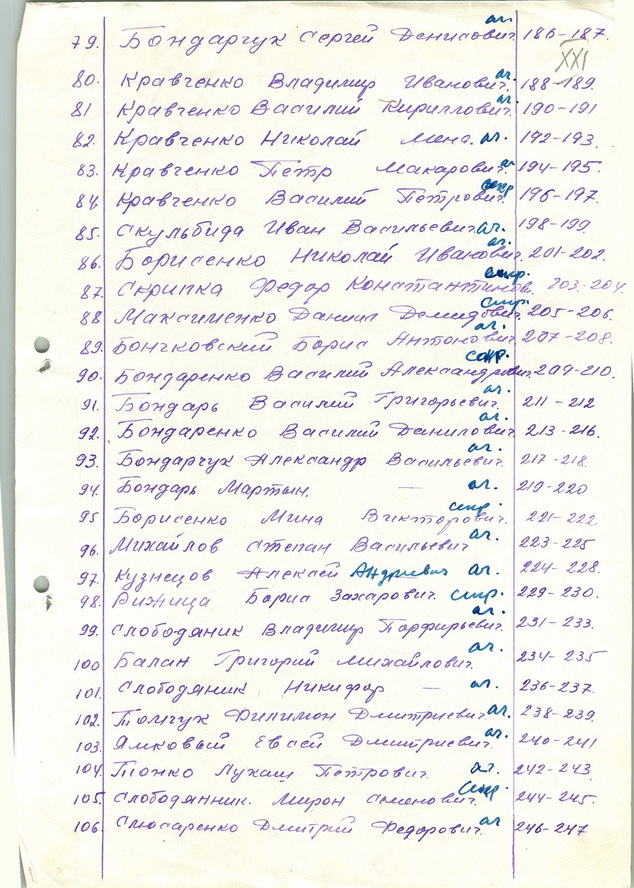 79. Бондарчук Сергей Денисович. ал. 186-187.
XXI
80. Кравченко Владимир Иванович. ал. 188-189.
81 Кравченко Василий Кириллович. ал. 190-191
82. Кравченко Николай Мена. ал. 192-193.
83. Кравченко Петр Макарович. ал 194-195.
84. Кравченко Василий Петрович. 196-197.
85. Скульбида Иван Васильевич. ал. 198-199
86. Борисенко Николай Иванович. ал. 201-202.
87. Скрипка Федор Константинов. 203-204.
88 Максименко Даниил Демидович. 205-206.
89. Бончковский Борис Антонович. ал. 207-208.
90. Бондаренко Василий Александрович. 209-210.
91. Бондарь Василий Григорьевич. ал. 211-212
92. Бондаренко Василий Данилович. ал. 213-216.
93. Бондарчук Александр Васильевич. ал. 217-218.
94. Бондарь Мартын. — ал. 219-220
95 Борисенко Мина Викторович. 221-222.
96. Михайлов Степан Васильевич ал. 223-225
97. Кузнецов Алексей Андриевич ал. 224-228.
98. Рижица Борис Захарович. 229-230.
99. Слободяник Владимир Порфирьевич. ал. 231-233.
100 Балан Григорий Михайлович. ал. 234-235
101. Слободяник Никифор — ал. 236-237.
102. Томчук Филимон Дмитриевич. ал. 238-239.
103. Ямковый Евсей Дмитриевич. ал. 240-241
104. Тонко Лукаш Петрович. ал. 242-243.
105. Слободянник. Мирон Семенович. 244-245.
106. Слюсаренко Дмитрий Федорович. ал 246-247